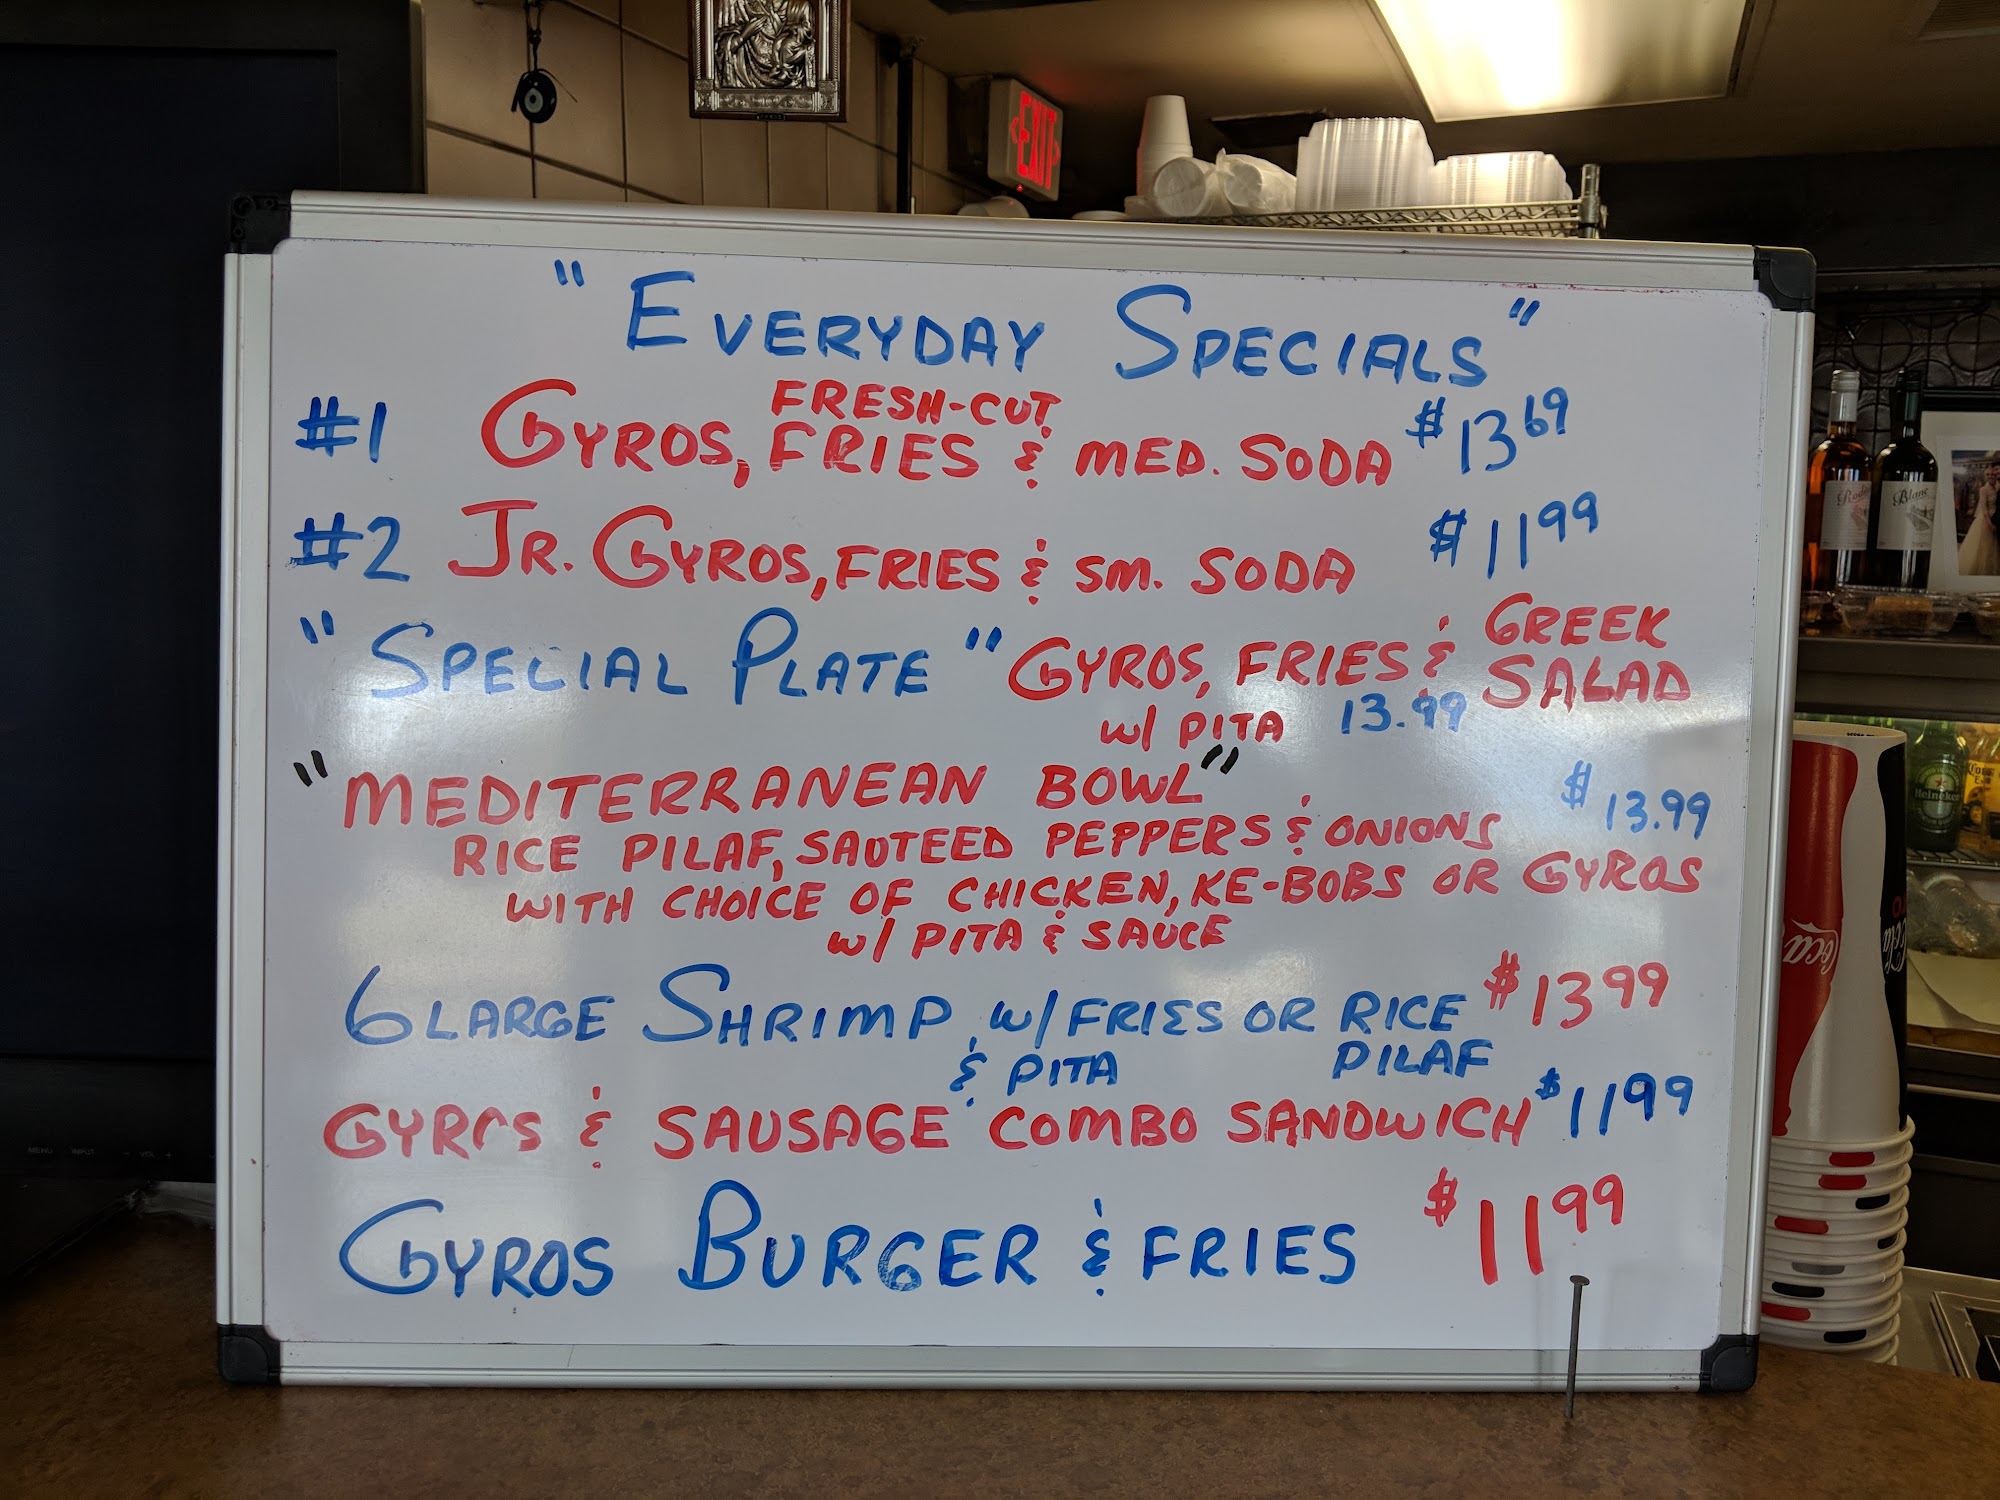 EXIT
" EVERYDAY SPECIALS "
#1 GYROS, FRESH-CUT FRIES & MED. SODA $13 69
#2 JR. GYROS, FRIES & SM. SODA $11 99
" SPECIAL PLATE " GYROS, FRIES & GREEK SALAD
w/ PITA 13.99
"MEDITERRANEAN BOWL" $13.99
RICE PILAF, SAUTEED PEPPERS & ONIONS
WITH CHOICE OF CHICKEN, KE-BOBS OR GYROS
w/ PITA & SAUCE
6 LARGE SHRIMP w/ FRIES OR RICE PILAF $13 99
& PITA
GYROS & SAUSAGE COMBO SANDWICH $11 99
GYROS BURGER & FRIES $11 99
Blanc
Heineken
Coca
Cola
MENU INPUT - VOL +